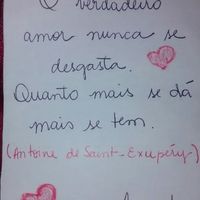 O verdadeiro
amor nunca se
desgasta.
Quanto mais se dá
mais se tem.
(Antoine de Saint-Exupéry-)